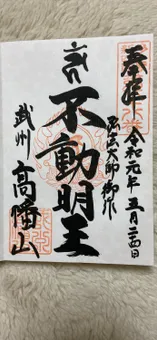 奉拝 令和元年 五月二四日
弘法大師御作
不動明王
武州 高幡山